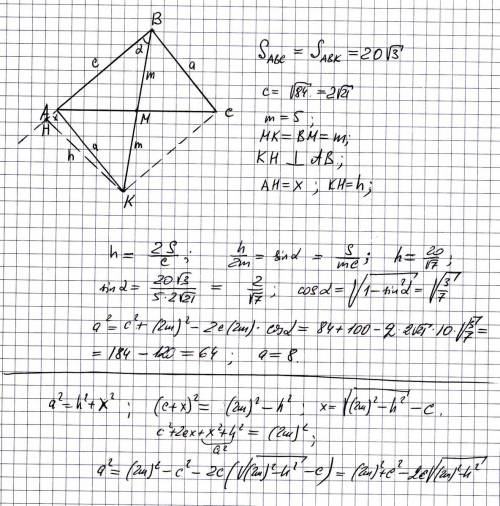 B
α
c
m
a
A
H
M
C
h
a
m
K
S_ABC = S_ABK = 20√3
c = √84 = 2√21
m = 5 ;
MK = BM = m;
KH ⊥ AB;
AH = x ; KH = h;
h = 2S/c ; h/2m = sin α = S/mc ; h = 20/√7 ;
sin α = 20√3/(5·2√21) = 2/√7 ; cos α = √(1 − sin²α) = √(3/7)
a² = c² + (2m)² − 2c(2m)·cos α = 84 + 100 − 2·2√21·10·√(3/7) =
= 184 − 120 = 64 ; a = 8.
a² = h² + x² ; (c+x)² = (2m)² − h² ; x = √((2m)² − h²) − c.
c² + 2cx + x² + h² = (2m)² ;
a²
a² = (2m)² − c² − 2c(√((2m)² − h²) − c) = (2m)² + c² − 2c√((2m)² − h²)